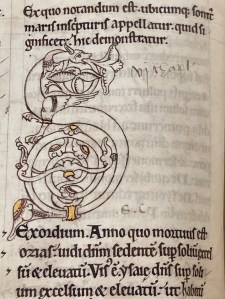 Ex quo notandum est. ubicumq; sonit
maris in scripturis appellatur. quid si
gnificetur hic demonstratur.
Exordium. Anno quo mortuus est
ozias. uidi dnm sedente sup soliu
et eleuatu. Vis e ysaie dns sup soli
um excelsum & eleuatu. ut